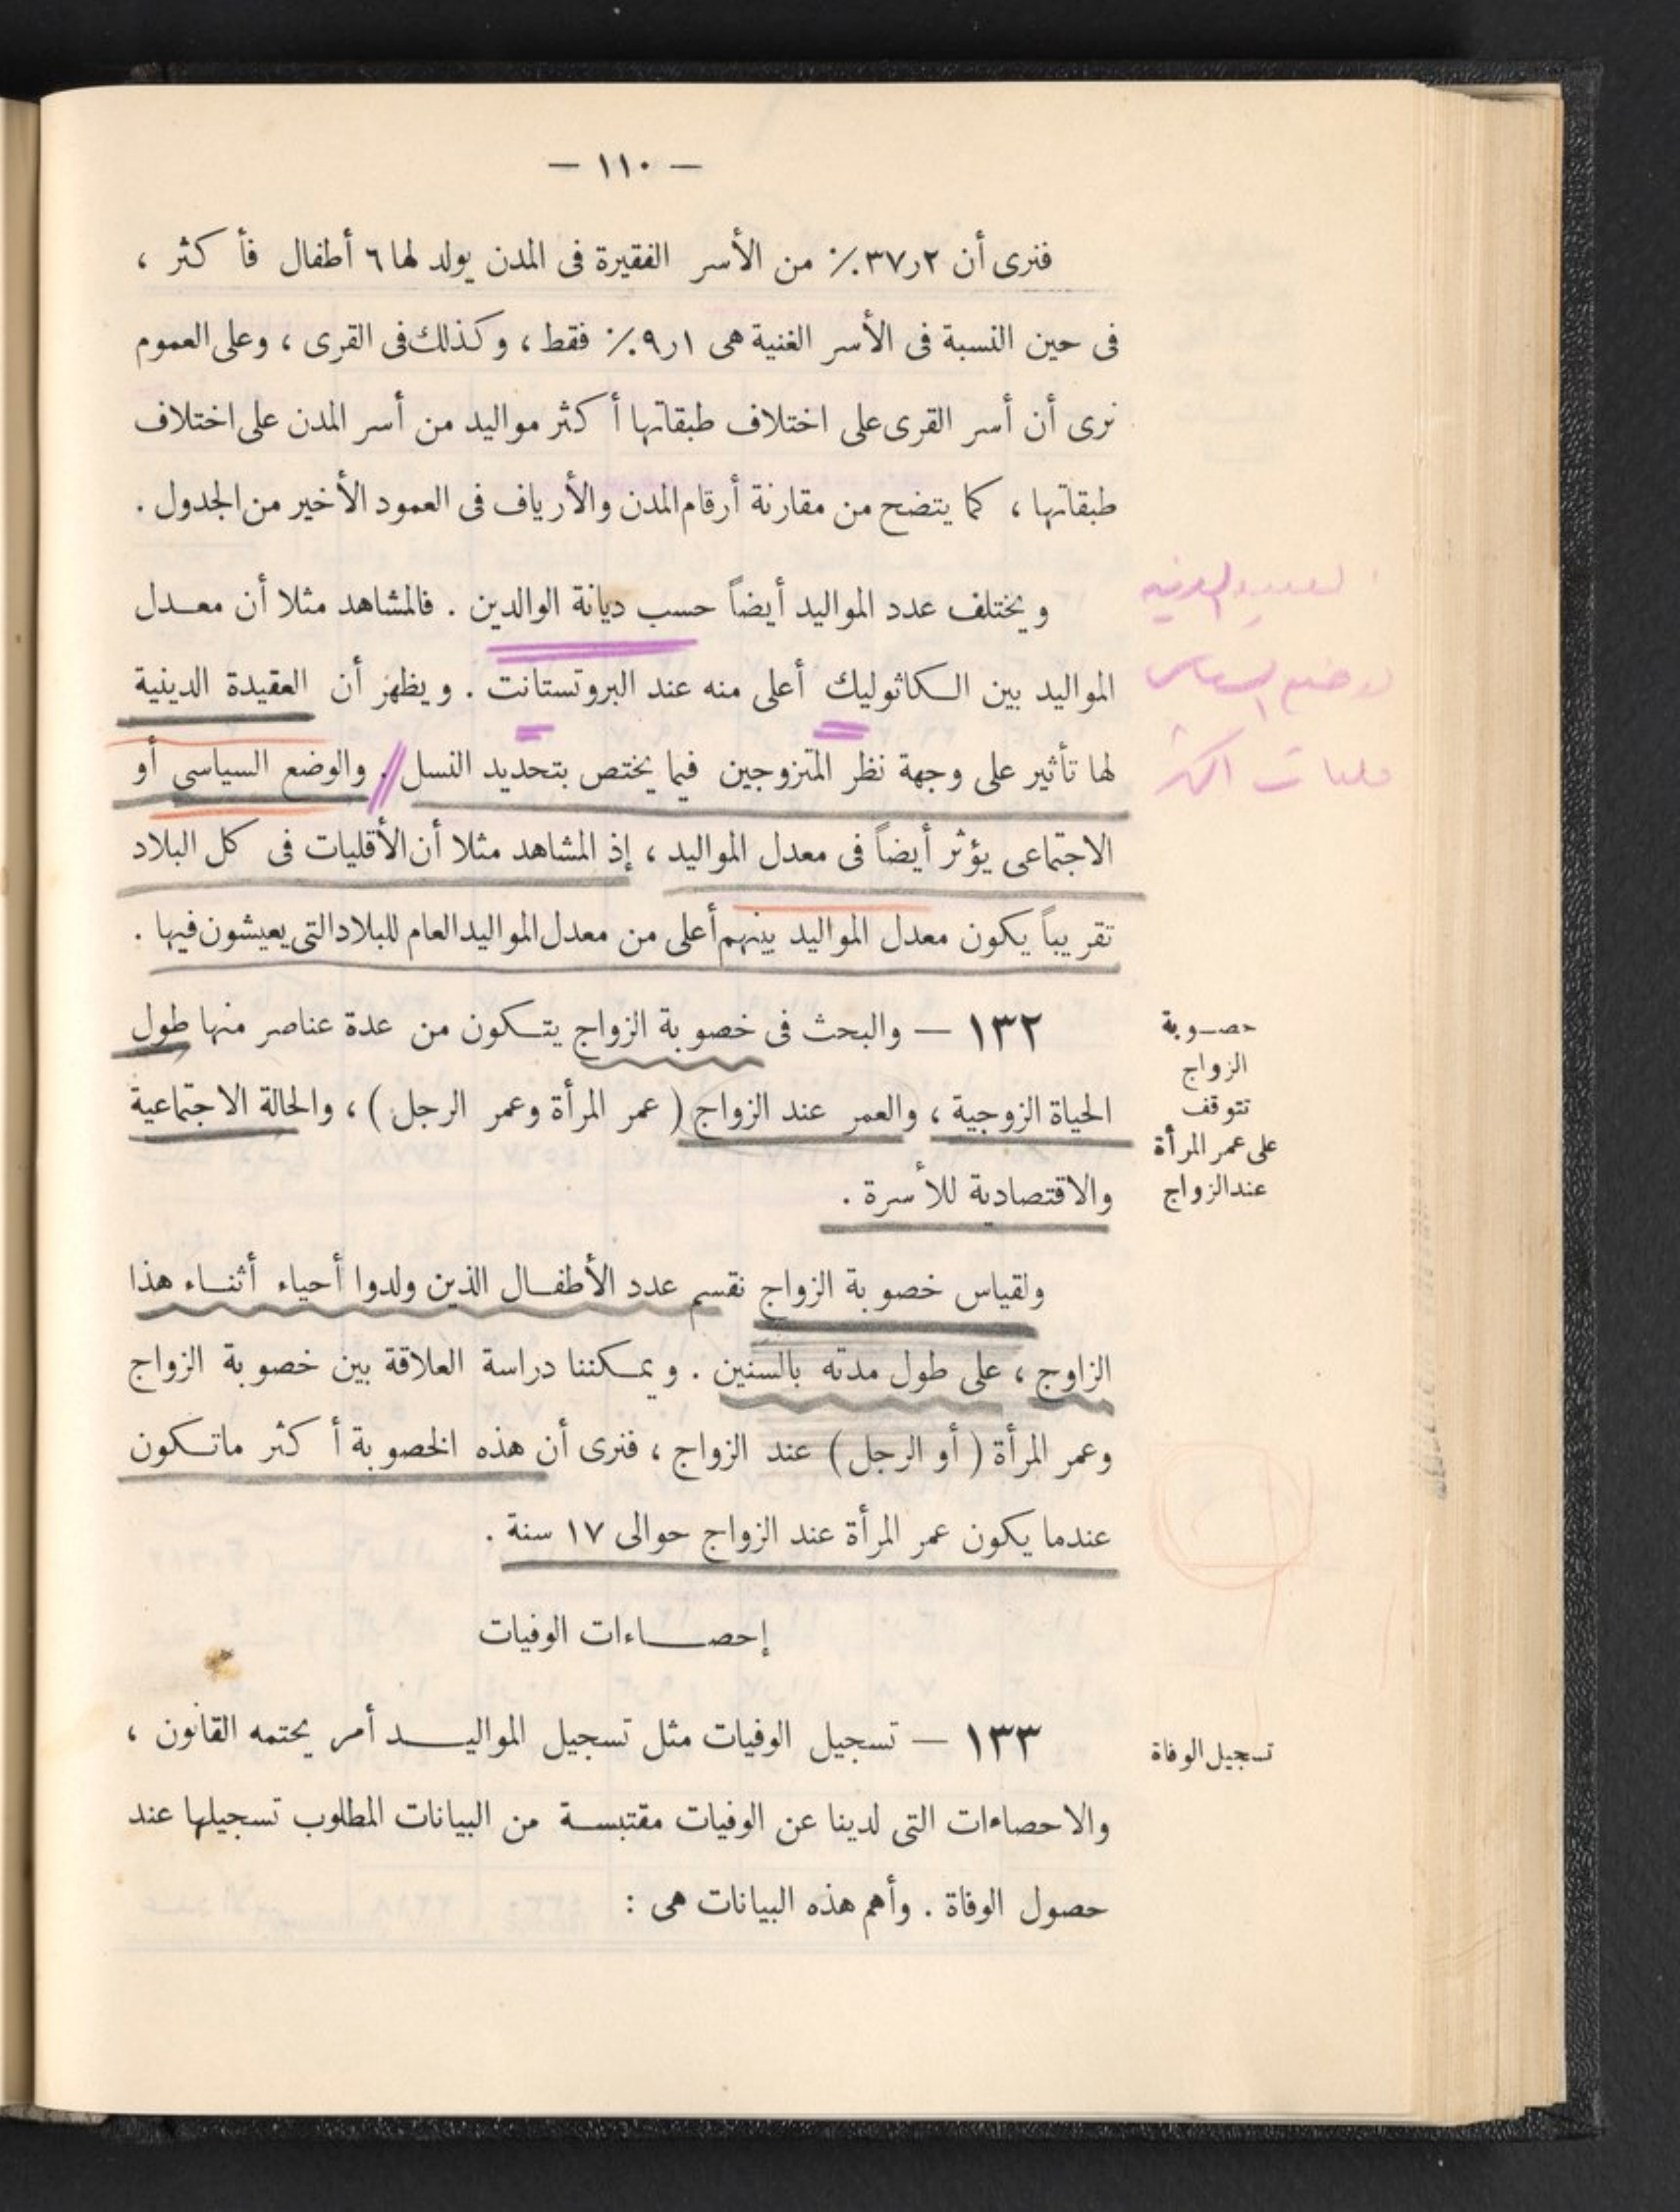 — ١١٠ —
فنرى أن ٣٧٫٢٪ من الأسر الفقيرة فى المدن يولد لها ٦ أطفال فأكثر ،
فى حين النسبة فى الأسر الغنية هى ٩٫١٪ فقط ، وكذلك فى القرى ، وعلى العموم
نرى أن أسر القرى على اختلاف طبقاتها أكثر مواليد من أسر المدن على اختلاف
طبقاتها ، كما يتضح من مقارنة أرقام المدن والأرياف فى العمود الأخير من الجدول .
ويختلف عدد المواليد أيضاً حسب ديانة الوالدين . فالمشاهد مثلا أن معدل
المواليد بين الكاثوليك أعلى منه عند البروتستانت . ويظهر أن العقيدة الدينية
لها تأثير على وجهة نظر المتزوجين فيما يختص بتحديد النسل . والوضع السياسى أو
الاجتماعى يؤثر أيضاً فى معدل المواليد ، إذ المشاهد مثلا أن الأقليات فى كل البلاد
تقريباً يكون معدل المواليد بينهم أعلى من معدل المواليد العام للبلاد التى يعيشون فيها .
خصوبة
الزواج
تتوقف
على عمر المرأة
عند الزواج
١٣٢ — والبحث فى خصوبة الزواج يتكون من عدة عناصر منها طول
الحياة الزوجية ، والعمر عند الزواج ( عمر المرأة وعمر الرجل ) ، والحالة الاجتماعية
والاقتصادية للأسرة .
ولقياس خصوبة الزواج نقسم عدد الأطفال الذين ولدوا أحياء أثناء هذا
الزاوج ، على طول مدته بالسنين . ويمكننا دراسة العلاقة بين خصوبة الزواج
وعمر المرأة ( أو الرجل ) عند الزواج ، فنرى أن هذه الخصوبة أكثر ماتكون
عندما يكون عمر المرأة عند الزواج حوالى ١٧ سنة .
إحصاءات الوفيات
تسجيل الوفاة
١٣٣ — تسجيل الوفيات مثل تسجيل المواليد أمر يحتمه القانون ،
والاحصاءات التى لدينا عن الوفيات مقتبسة من البيانات المطلوب تسجيلها عند
حصول الوفاة . وأهم هذه البيانات هى :